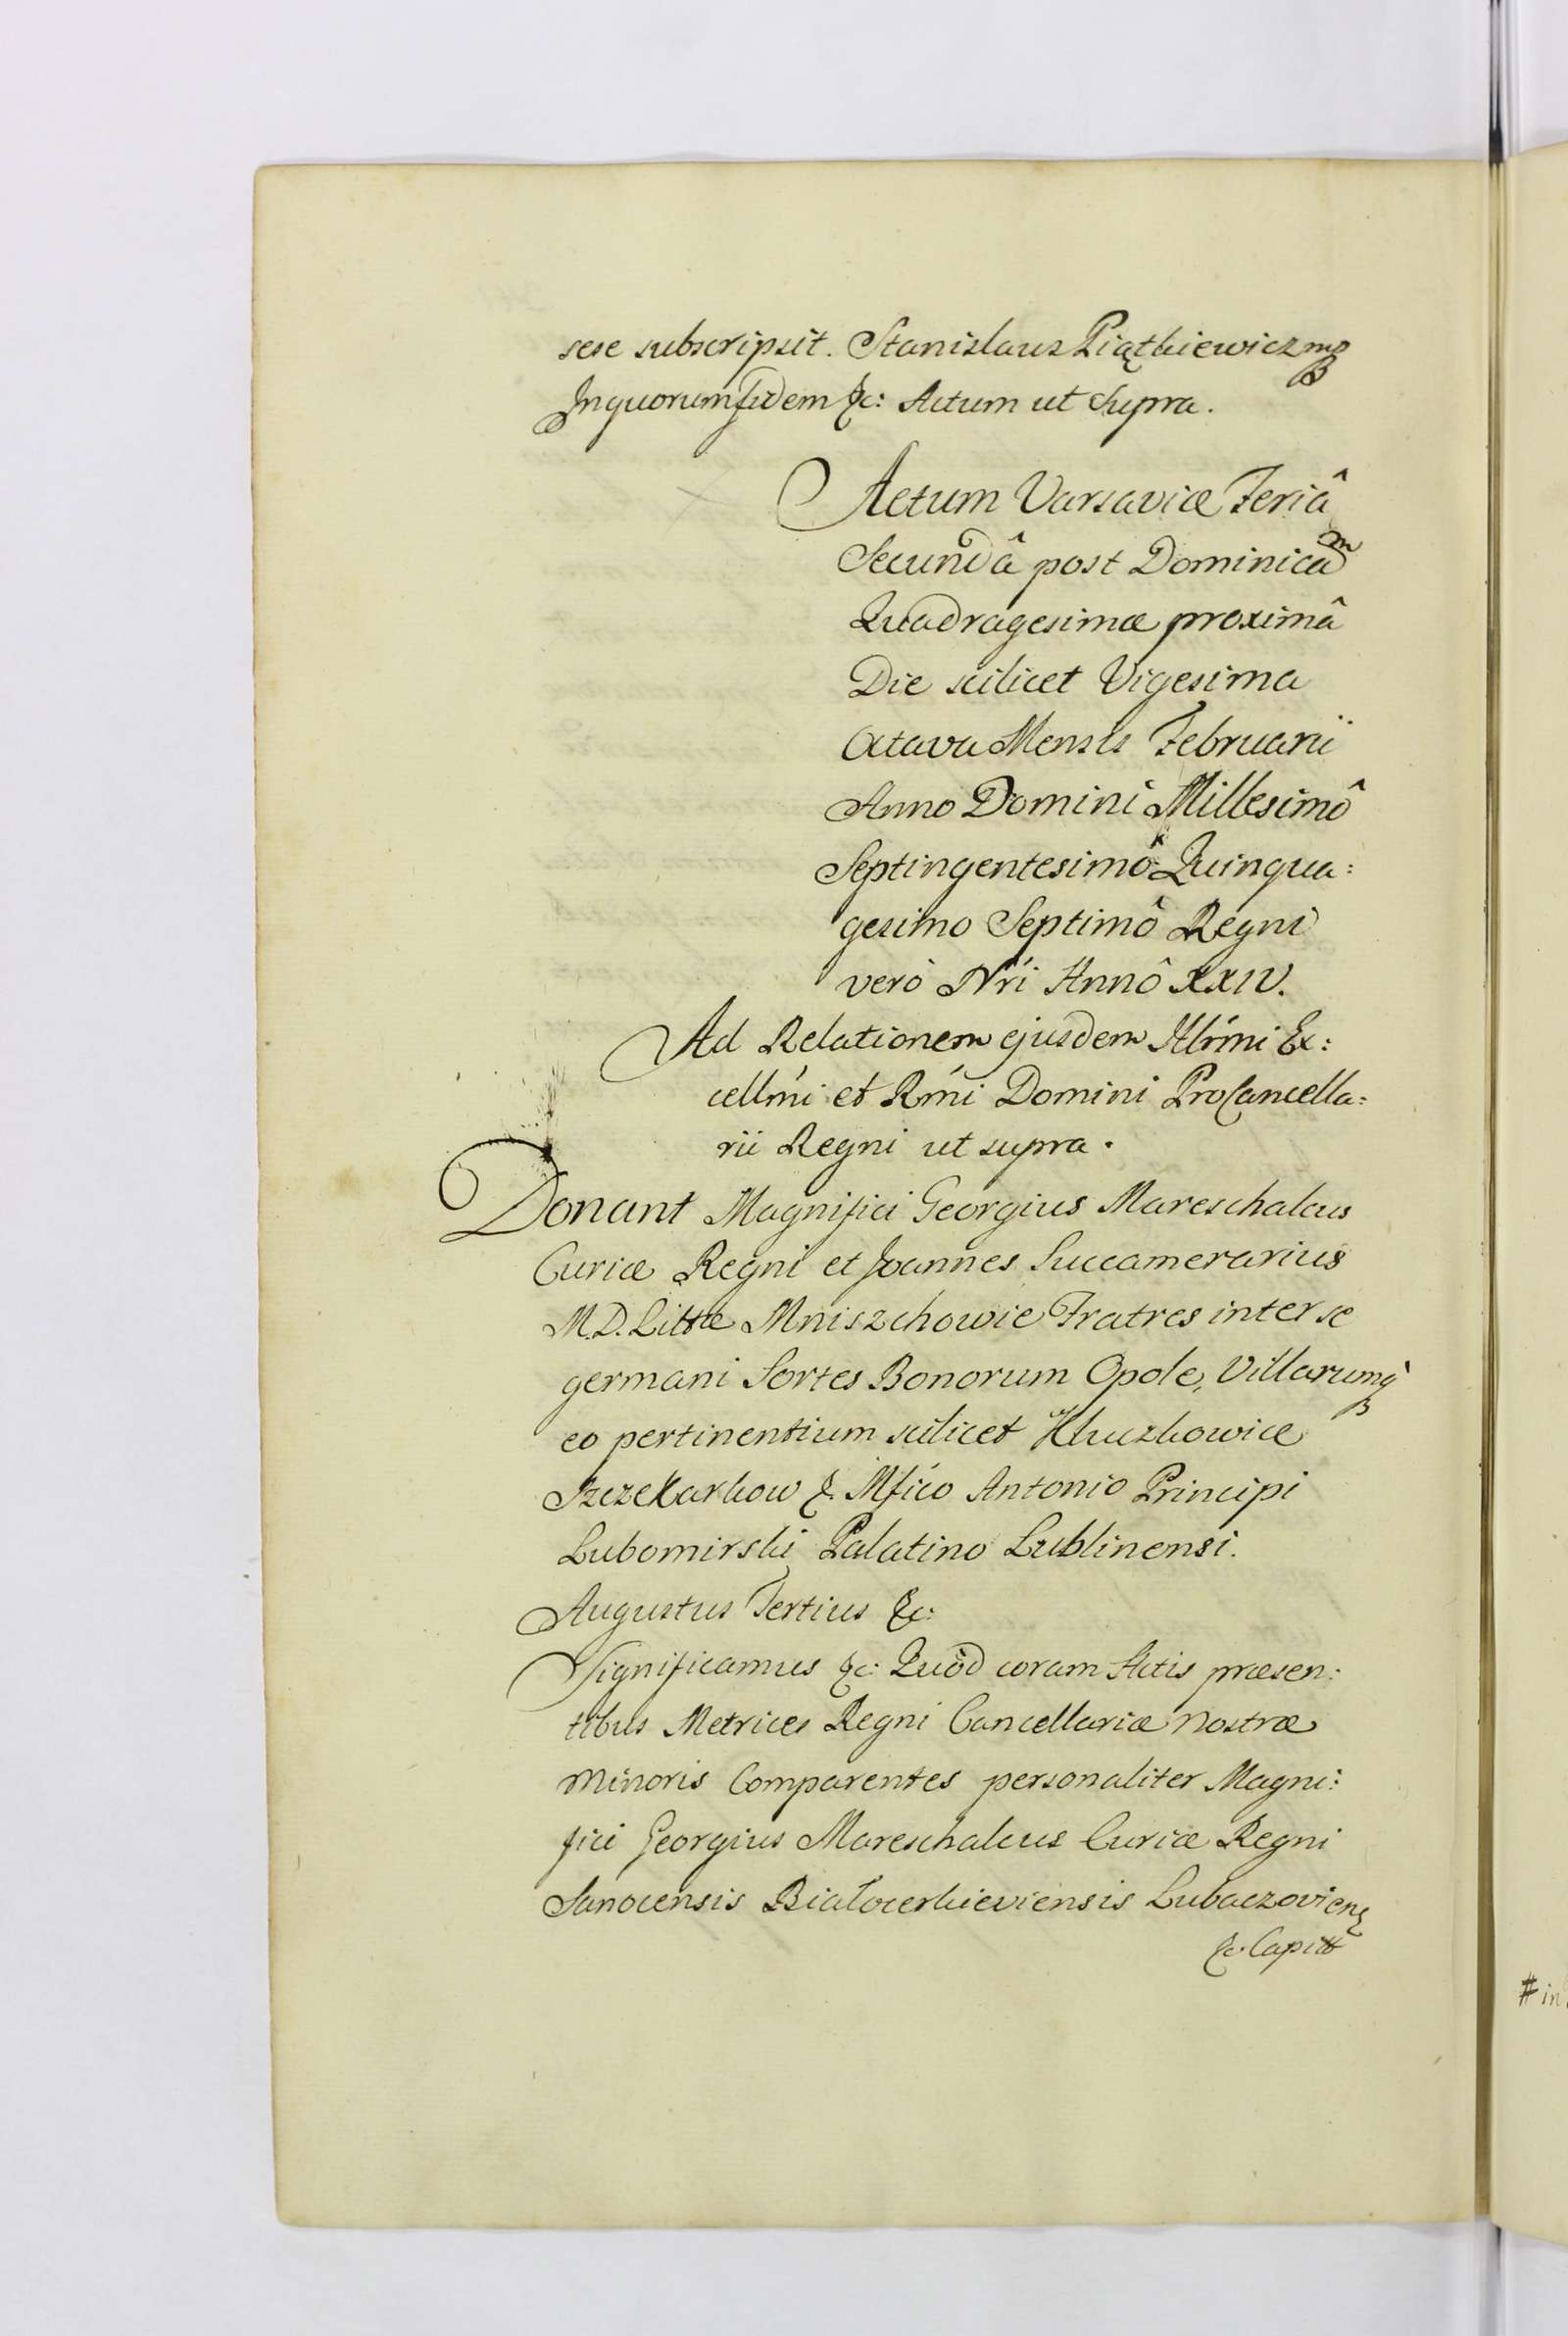 sese subscripsit. Stanislaus Piątkiewicz mp
In quorum fidem &c: Actum ut Supra.
Actum Varsaviæ Feriâ
Secundâ post Dominicam
Quadragesimæ proximâ
Die scilicet Vigesima
Octava Mensis Februarii
Anno Domini Millesimô
Septingentesimô Quinqua:
gesimo Septimô Regni
verò Nri Annô XXIV.
Ad Relationem ejusdem Illrmi Ex:
cellmi et Rmi Domini ProCancella:
rii Regni ut supra.
Donant Magnifici Georgius Mareschalcus
Curiæ Regni et Joannes Succamerarius
M.D. Littæ Mniszchowie Fratres inter se
germani Sortes Bonorum Opole, Villarumq
eo pertinentium scilicet Kluczkowice
Szczekarkow &. Mfico Antonio Principi
Lubomirski Palatino Lublinensi.
Augustus Tertius &c:
Significamus &c: Quòd coram Actis præsen:
tibus Metrices Regni Cancellariæ nostræ
Minoris Comparentes personaliter Magni:
fici Georgius Mareschalcus Curiæ Regni
Sanocensis Białocerkieviensis Lubaczovien
&c. Capitt
# in